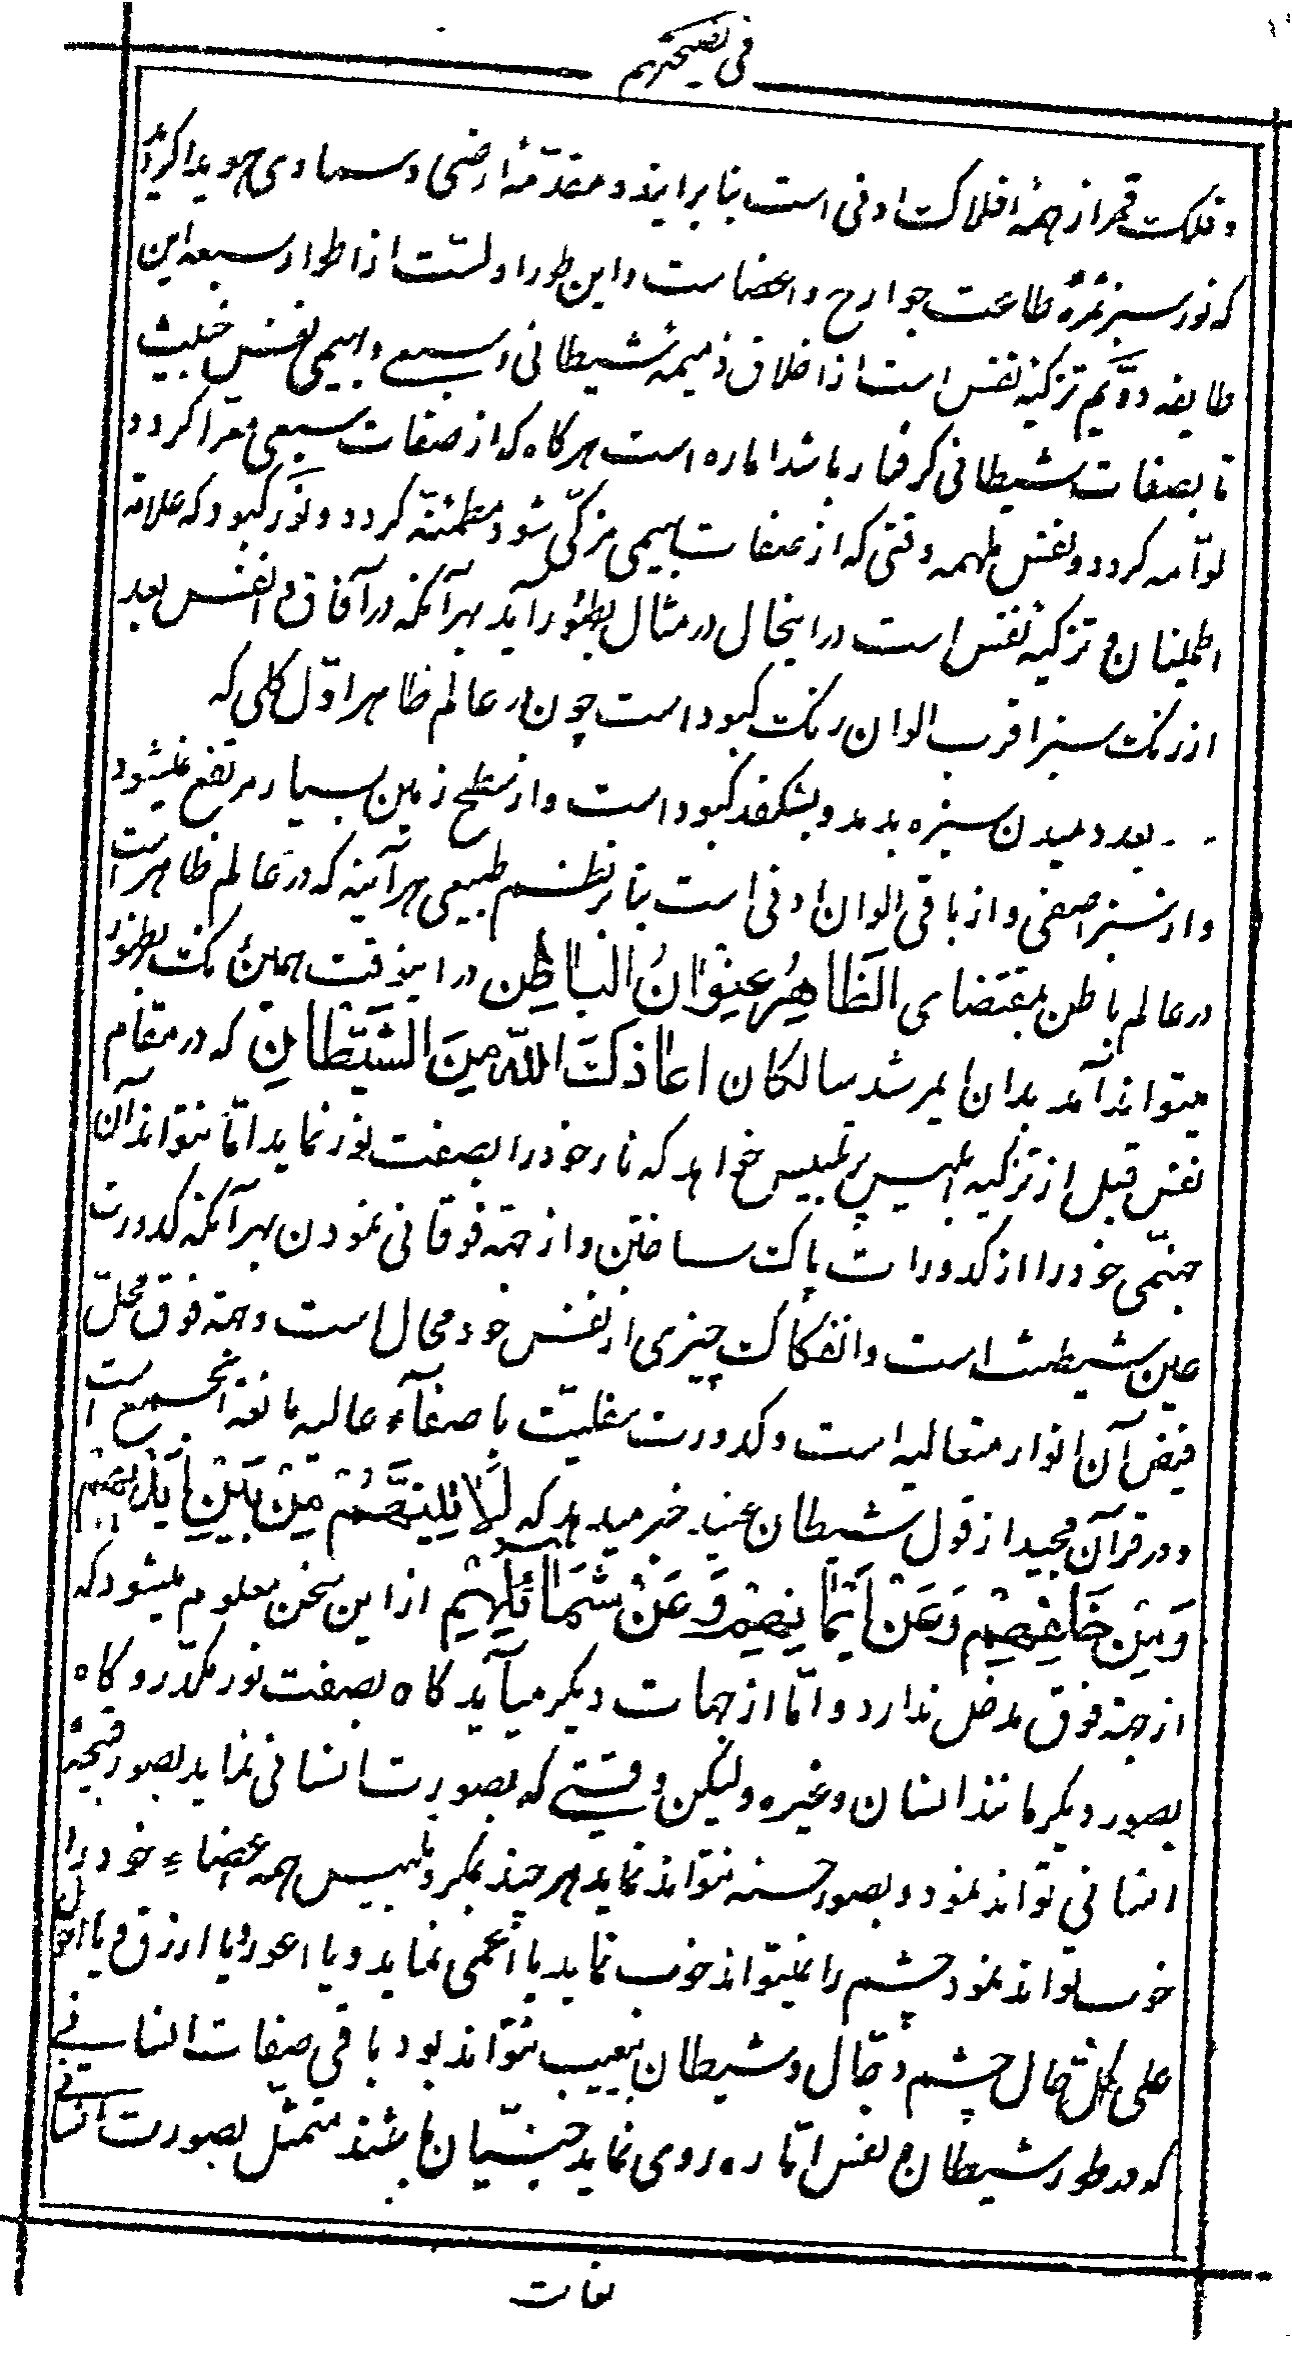 فی نصیحتهم
و فلک قمر از جمله افلاک ادنی است بنا بر ایند و مقدمهٔ ارضی و سماوی هویدا گردد
که نور سبز ثمرهٔ طاعت جوارح و اعضاست و این طور اولست از اطوار سبعه این
طایفه دویم تزکیهٔ نفس است از اخلاق ذمیمه شیطانی و سبعی و بهیمی نفس خبیث
تا بصفات شیطانی گرفتار باشد اماره است هرگاه که از صفات سبعی مبرا گردد
لوّامه گردد و نفس ملهمه وقتی که از صفات بهیمی مزکّی شود مطمئنّه گردد و نور کبود که علامة
اطمینان و تزکیه نفس است در اینحال در مثال بظهور آید بهر آنکه در آفاق و انفس بعد
از رنگ سبز اقرب الوان رنگ کبود است چون در عالم ظاهر اوّل گلی که
بعد دمیدن سبزه بدمد و بشکفد کبود است و از سطح زمین بسیار مرتفع نمیشود
و از سبز اصفی و از باقی الوان ادنی است بنا بر نظم طبیعی هر آینه که در عالم ظاهر است
در عالم باطن بمقتضای الظَّاهِرُ عِنْوَانُ الْبَاطِنِ در اینوقت همین رنگ بظهور
میتواند آمد بدان ایمرشد سالکان اعاذکَ اللّه مِنَ الشَّیْطَانِ که در مقام
نفس قبل از تزکیه ابلیس پر تلبیس خواهد که نار خود را بصفت نور نماید امّا نتواند آن
جهنّمی خود را از کدورات پاک ساختن و از جهة فوقانی نمودن بهر آنکه کدورت
عین شیطنت است و انفکاک چیزی از نفس خود محال است و جهة فوق محلّ
فیض آن انوار متعالیه است و کدورت سفلیّت با صفآء عالیه مانعة الجمع است
و در قرآن مجید از قول شیطان عنید خبر میدهد که لَاٰتِیَنَّهُمْ مِنْ بَیْنِ اَیْدِیهِمْ
وَمِنْ خَلْفِهِمْ وَعَنْ اَیْمَانِهِمْ وَعَنْ شَمَائِلِهِمْ از این سخن معلوم میشود که
از جهة فوق مدخل ندارد و امّا از جهات دیگر میآید گاه بصفت نور مکدّر و گاه
بصور دیگر مانند انسان و غیره و لیکن وقتی که بصورت انسانی نماید بصور قبیحهٔ
انسانی تواند نمود و بصور حسنه نتواند نماید هر چند بمکر و تلبیس همه اعضاء خود را
خوب تواند نمود چشم را نمیتواند خوب نماید یا اعمی نماید و یا اعور و یا ازرق و یا احول
علی کلّ حال چشم دجّال و شیطان بیعیب نتواند بود باقی صفات انسانی
که در طور شیطان و نفس امّاره روی نماید جنّیان باشند متمثّل بصورت انسانی